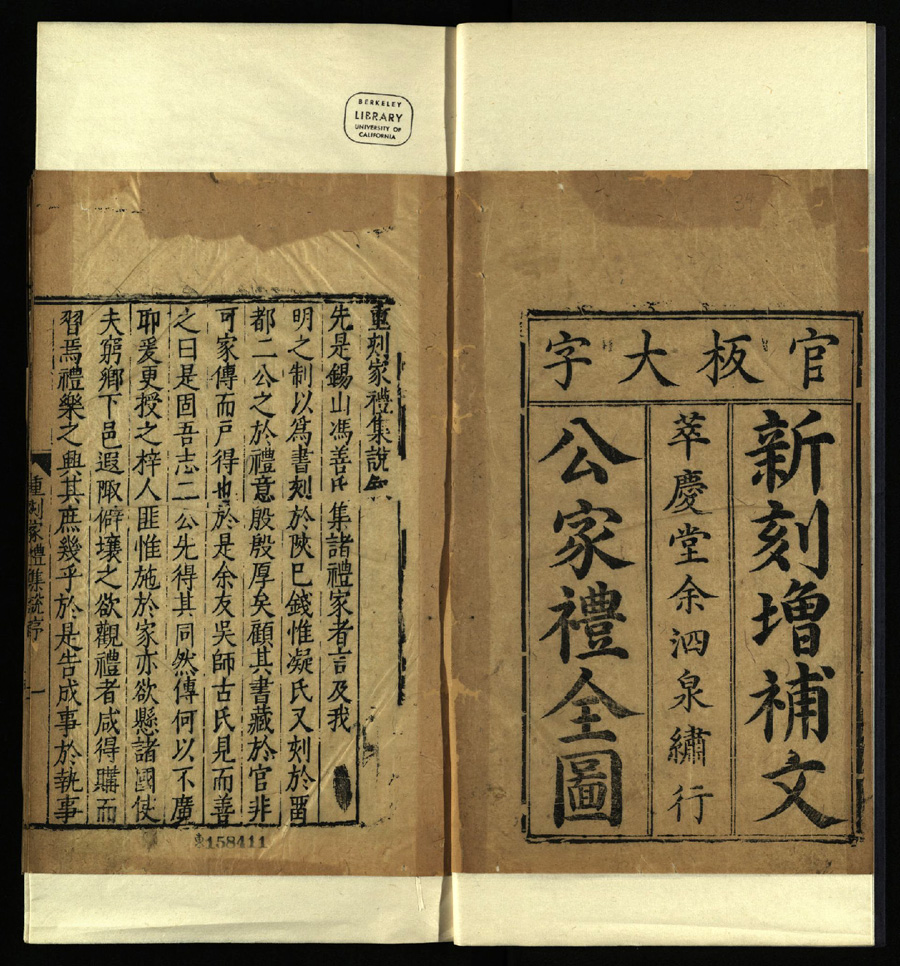 BERKELEY
LIBRARY
UNIVERSITY OF
CALIFORNIA
官板大字
新刻增補文
萃慶堂余泗泉繡行
公家禮全圖
重刻家禮集說
先是錫山馮善氏集諸禮家者言及我
明之制以爲書刻於陝巳錢惟凝氏又刻於畱
都二公之於禮意殷殷厚矣顧其書藏於官非
可家傳而戸得也於是余友吳師古氏見而善
之曰是固吾志二公先得其同然傳何以不廣
耶爰更授之梓人匪惟施於家亦欲懸諸國使
夫窮鄉下邑遐陬僻壤之欲觀禮者咸得購而
習焉禮樂之興其庶幾乎於是告成事於執事
重刻家禮集說序
一
158411